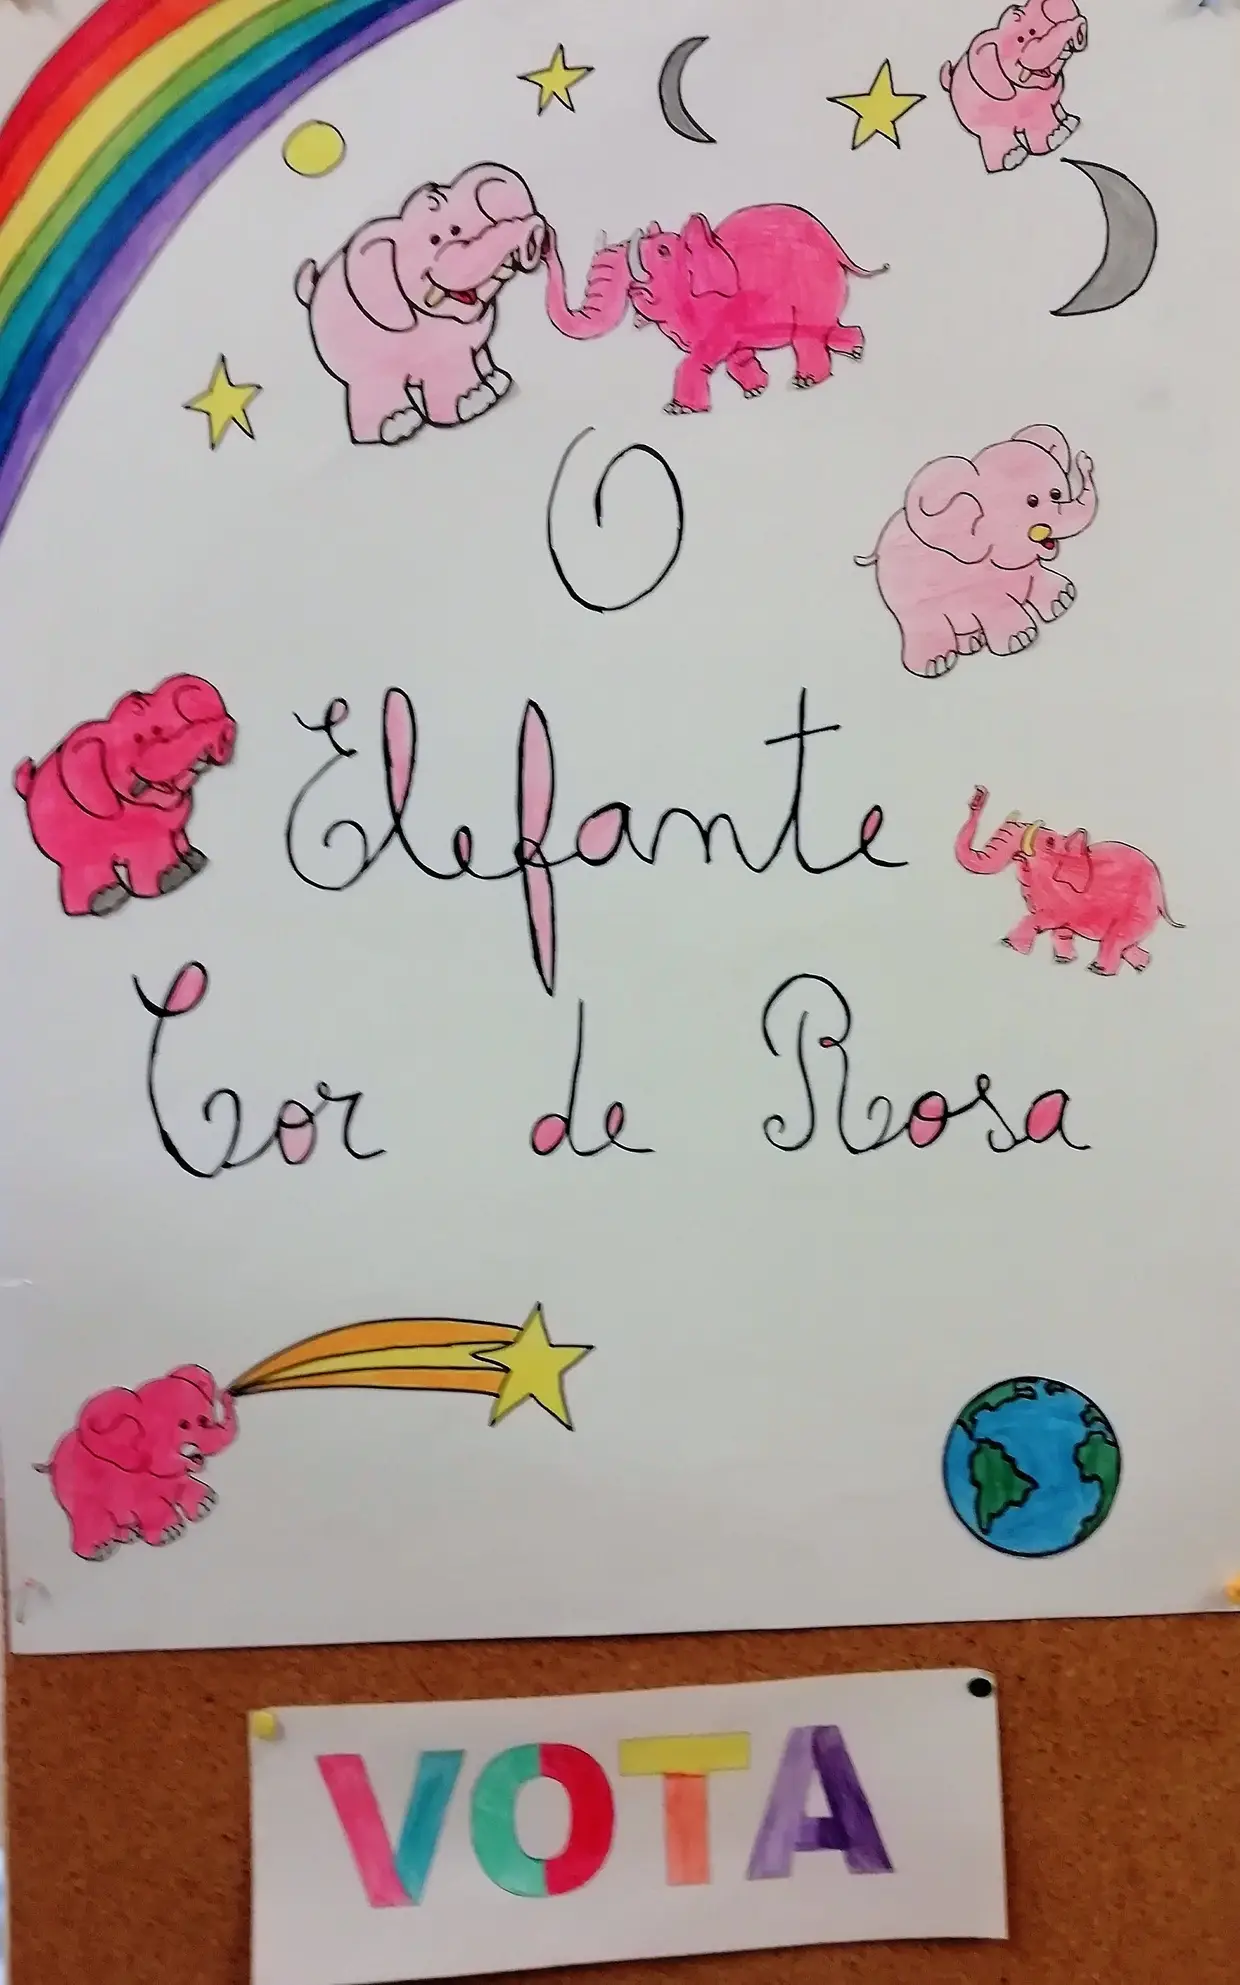 O
Elefante
Cor de Rosa
VOTA